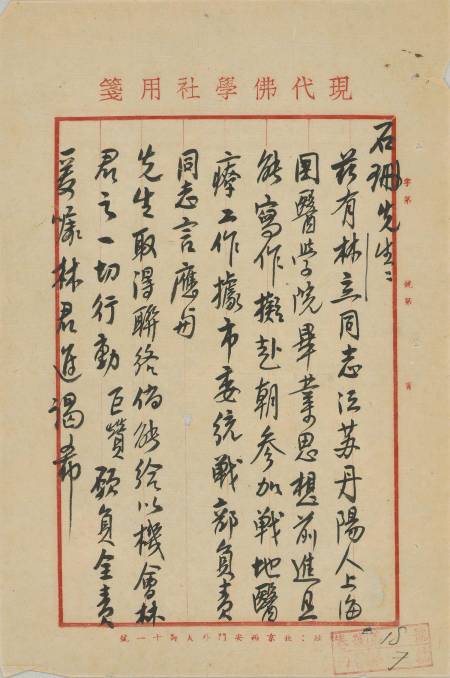 現代佛學社用箋
字第
號第
頁
石珊先生：
茲有林立同志江苏丹陽人上海
国醫学院畢業思想前進且
能寫作擬赴朝参加戦地醫
療工作據市委统戦部負責
同志言應与
先生取得聯络倘能给以機會林
君之一切行動巨贊願負全責
爰嘱林君進謁希
社：北京西安門外大街十一號
18/7